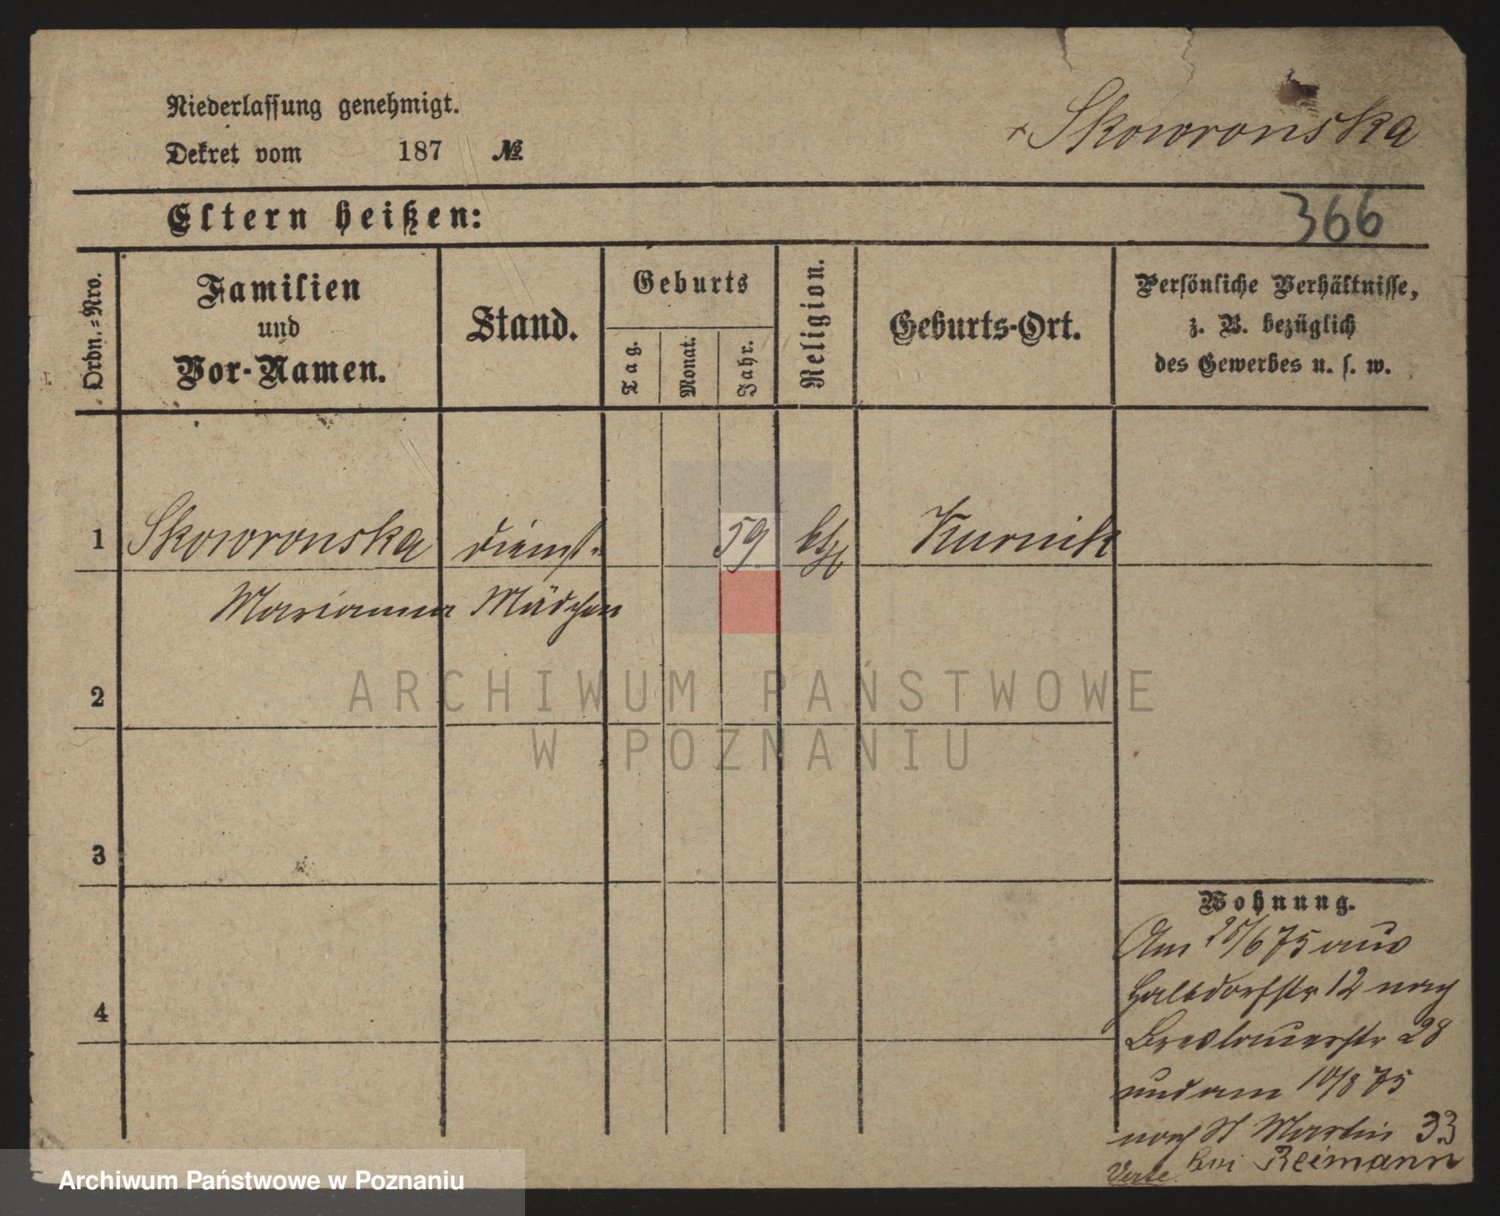 Niederlassung genehmigt.
Dekret vom 187 №
+ Skowronska
Eltern heißen:
366
Ordn.=Nro.
Familien
und
Vor-Namen.
Stand.
Geburts
Tag.
Monat.
Jahr.
Religion.
Geburts-Ort.
Persönliche Verhältnisse,
z. B. bezüglich
des Gewerbes u. s. w.
1 Skowronska dienst- 59 Kurnik
Marianna Mädchen
2
3
4
Wohnung.
Am 25/6 75 aus
Halbdorfstr 12 nach
Breslauerstr 28
und am 10/8 75
nach St Martin 33
bei Reimann
Verte
ARCHIWUM PAŃSTWOWE
W POZNANIU
Archiwum Państwowe w Poznaniu